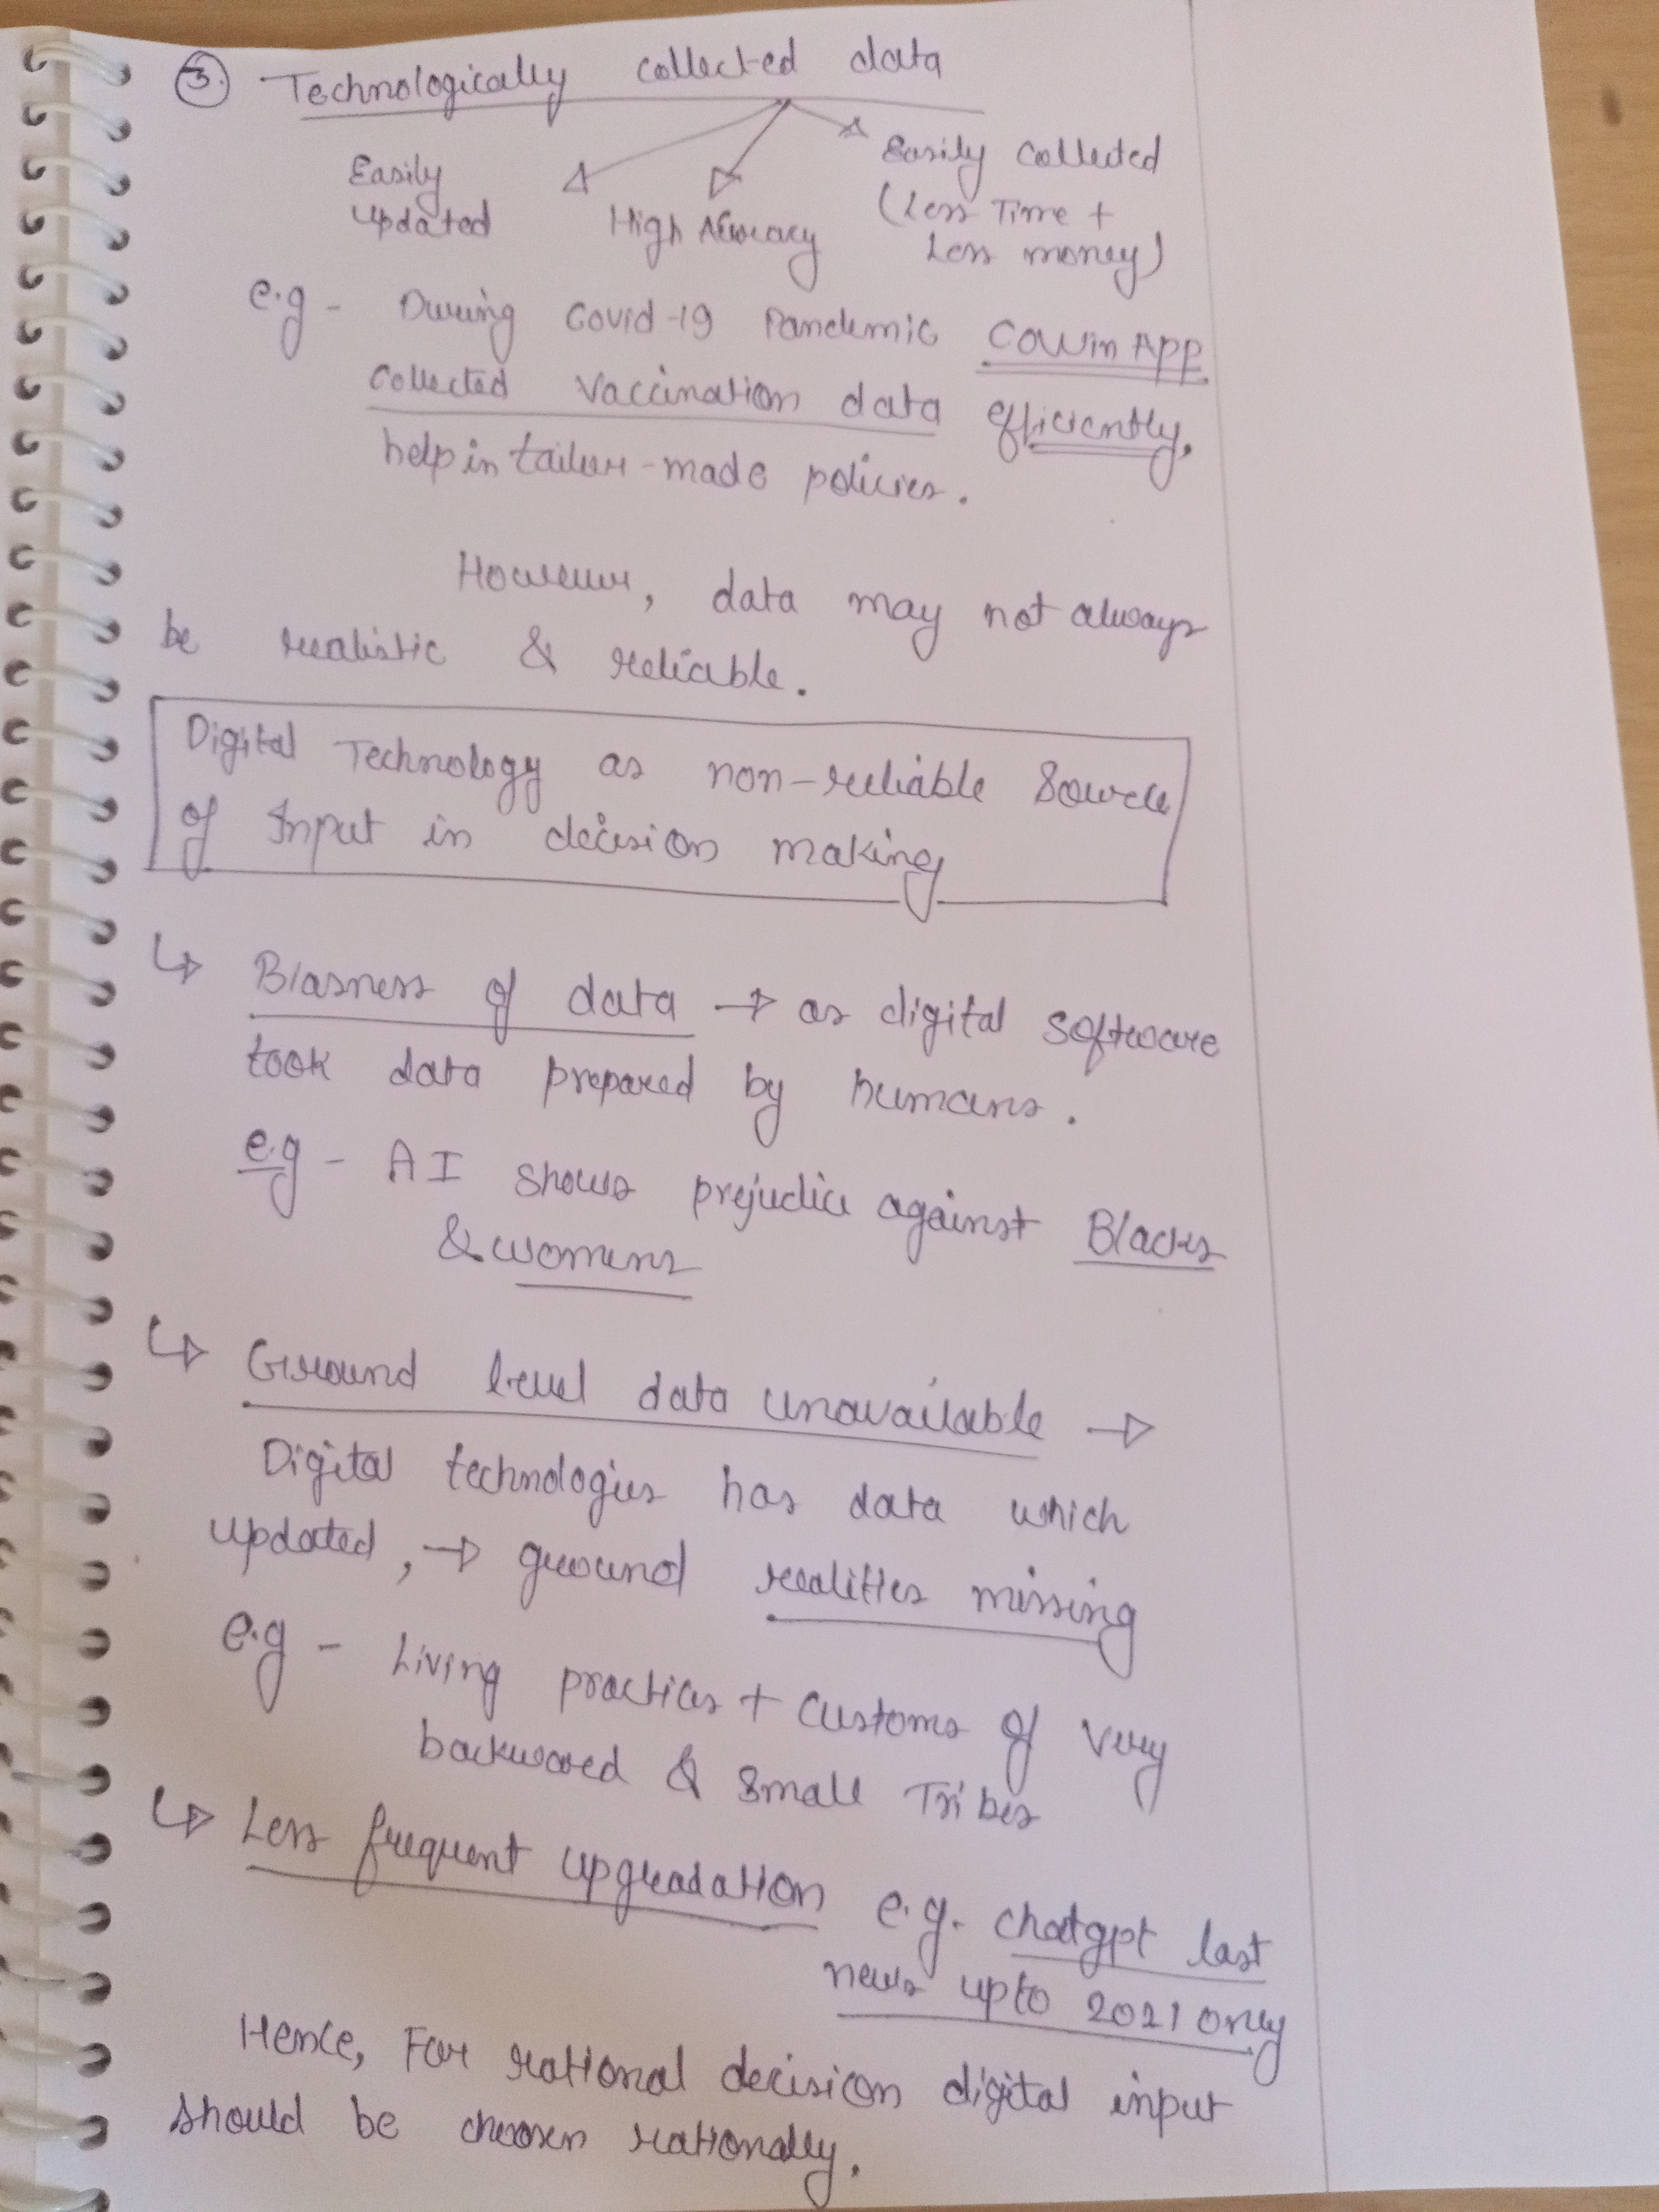 3. Technologically collected data
Easily
updated
High Accuracy
Easily Collected
(Less Time +
Less money)
e.g - During Covid-19 Pandemic CoWin App
Collected Vaccination data efficiently.
help in tailur-made policies.
However, data may not always
be realistic & reliable.
Digital Technology as non-reliable Source
of Input in decision making
↳ Biasness of data → as digital software
took data prepared by humans.
e.g - AI shows prejudice against Blacks
& womens
↳ Ground level data unavailable →
Digital technologies has data which
updated, → ground realities missing
e.g - Living practices + customs of very
backward & small Tribes
↳ Less frequent upgradation e.g. chatgpt last
news upto 2021 only
Hence, For rational decision digital input
should be choosen rationally.